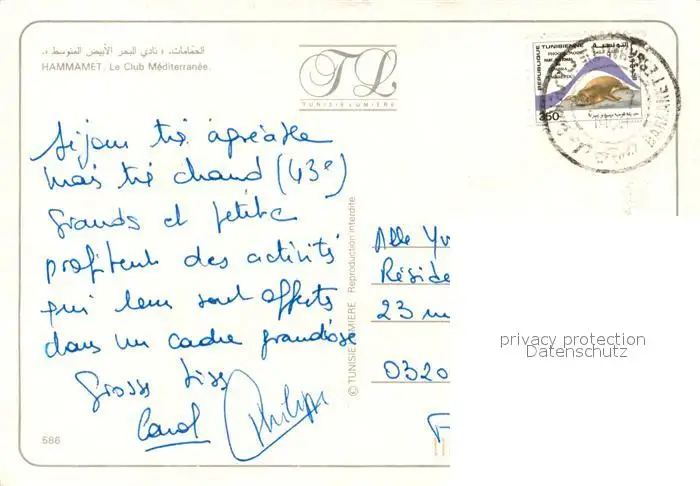 الحمّامات. « نادي البحر الأبيض المتوسط ».
HAMMAMET. Le Club Méditerranée.
TL
TUNISIE LUMIERE
REPUBLIQUE TUNISIENNE
350
Séjour très agréable
mais très chaud (43°)
grands et petits
profitent des activités
qui leur sont offerts
dans un cadre grandiose
Grosses bises
Carol Philippe
586
© TUNISIE LUMIERE Reproduction interdite
Mlle Yv
Réside
23
0320
F
privacy protection
Datenschutz